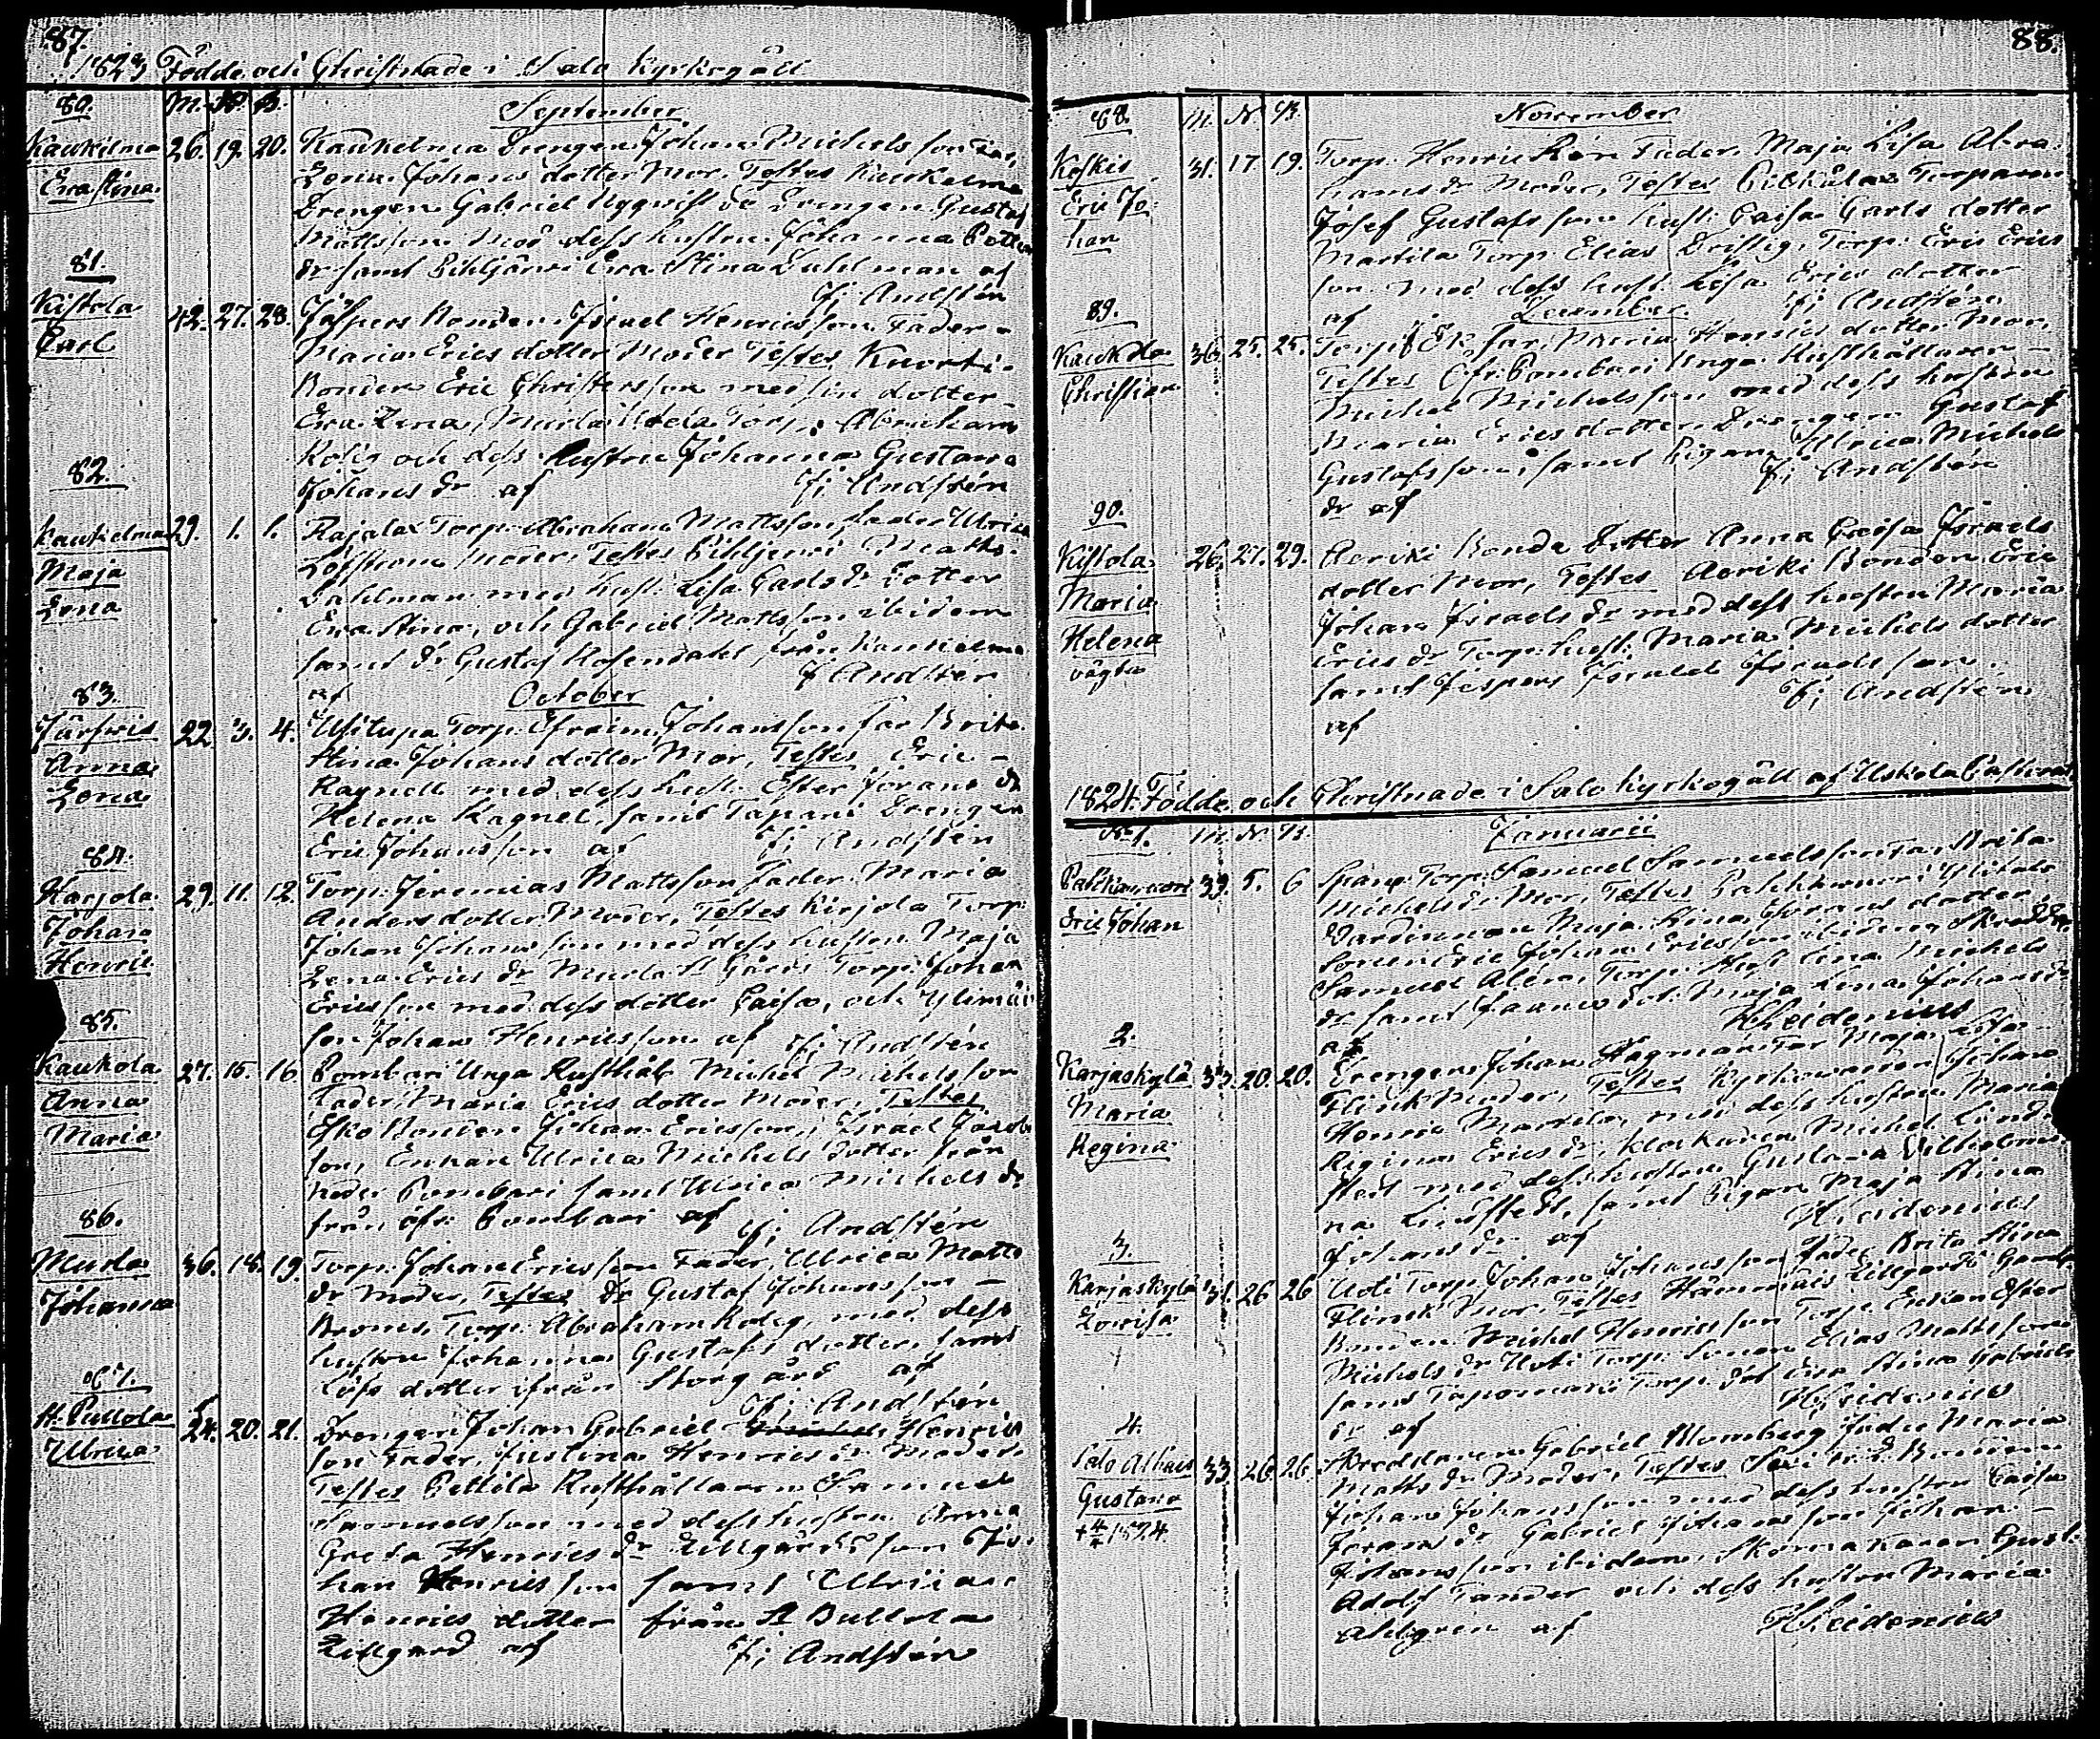 87.
1823 Födde och Christnade i Salo Kyrkogäll
80. M. N. B. September
Kaukelma 26. 19. 20. Kaukelma Drengen Johan Michelsson Far,
Eva Stina Lena Johans dotter Mor. Testes Kaukelma
Drengen Gabriel Nyqvist Dr Drengen Gustaf
Mattsson med dess hustru Johanna
dr samt Pihljärvi Eva Stina Dahlman af
81. Fj Andstén
Kistola 42. 27. 28. Jespers Bonden Israel Henricsson Fader
Carl Maria Erics dotter Moder Testes Kuorti
Bonden Eric Christersson med sin dotter
Eva Lena, Murla Torp. Abraham
Kolig och dess Hustru Johanna Gustava
82. Johans dr af Fj Andstén
Kaukelma 29. 1. 1. Rajala Torp. Abraham Mattsson fader Ulrica
Maja Löfström Moder, Testes Pihljervi Matts
Lena Dahlman med hust. Lisa Carls dr Dotter
Eva Stina, och Gabriel Mattsson ibidem
samt dr Gustaf Rosendahl från Kaukelma
83. af October Fj Andstén
22. 3. 4. Usitupa Torp. Efraim Johansson Far Brita
Anna Stina Johans dotter Mor, Testes Eric
Lena Ragnell med dess hust. Ester Jörans dr
Helena Ragnel, samt Tapani Drengen
84. Eric Johansson af Fj Andstén
Karjola 29. 11. 12. Torp. Jeremias Mattsson Fader Maria
Johan Anders dotter Moder, Testes Kirjola Torp.
Henric Johan Johansson med dess hustru Maja
Lena Erics dr Murla Gårds Torp. Johan
Ericsson med dess dotter Caisa, och
85. son Johan Henricsson af Fj Andstén
Kaukola 27. 15. 16 Pombari Unga Rusthål. Michel Michelsson
Anna Fader Maria Erics dotter Moder, Testes
Maria Esko Bonden Johan Ericsson, Israel Jacobs
son, Enkan Ulrica Michels dotter från
Neder Pombari samt Ulrica Michels dr
86. från öfr. Pombari af Fj Andstén
Murla 36. 18. 19. Torp. Johan Ericsson Fader, Ulrica Matts
Johanna dr Moder, Testes dr Gustaf Johansson
Torp. Abraham Kolig, med dess
hustru Johanna Gustafs dotter, samt
87. dotter ifrån Storgård af
Fj Andstén
H. Pullola 24. 20. 21. Drengen Johan Gabriel Henrics
Ulrica son Fader, Justina Henrics dr Moder
Testes Pettilä Rusthållaren Samuel
Samuelsson med dess hustru Anna
Greta Henrics dr Lillgårds son Jo-
han Henricsson samt Ulrica
Henrics dotter från H Bullola
Lillgård af Fj Andstén
88.
88. M. N. B. November
Koskis 31. 17. 19. Torp. Henric Rén Fader, Maja Lisa Abra-
Eric Jo- hams dr Moder, Testes Torparen
han Josef Gustafsson hust. Caisa Carls dotter
Martila Torp. Elias Driftig, Torp. Eric Erics
son med dess hust. Lisa Erics dotter
89. af December Fj Andstén
Kaukola 36 25. 25. Torp. Ek far, Maria Henrics dotter Mor,
Christian Testes Öfr. Pombari Unga Rusthållaren
Michel Michelsson med dess hustru
Maria Erics dotter, Drengen Gustaf
Gustafsson, samt Pigan Ulrica Michels
90. dr af Fj Andstén
Kistola 26. 27. 29. Aeriki Bonde Dotter Anna Caisa Israels
Maria dotter Mor, Testes Aeriki Bonden Eric
Helena Johan Israels dr med dess hustru Maria
oägta Erics dr Torp. hust. Maria Michels dotter
samt Jespers Israel Israelsson
af Fj Andstén
1824 Födde och Christnade i Salo Kyrkogäll af Uskela
No 1. M. N. B. Januarii
Pahkavuori 39. 5. 6 Torp. Samuel Samuelsson Far Brita
Eric Johan Michels dr Mor, Testes Pahkavuori
Maja Stina Jörans dotter
Sonen Eric Johan Ericsson ibidem
Samuel Alén, Torp. Hust. Michels
dr samt Maja Lena Johans dr
2. af Heidenius
Karjaskylä 33. 20. 20. Drengen Johan Hagman Far Maja Lisa
Maria Flink Moder, Testes Kyrkowärden Johan
Regina Henric Martila, med dess hustru Maria
Regina Erics dr, Klockaren Michel Lind-
stedt med dess hustru Gustava Vilhelmi-
na Lindstedt, samt Pigan Maja Stina
3. Johans dr af Heidenius
Karjaskylä 31. 26 26 Uoti Torp. Johan Johansson Fader Brita Stina
Lovisa Flinck Mor, Testes Lillgårds Gamla
Bonden Michel Henricsson Torp. Enkan Ester
Michels dr Uoti Torp. Sonen Elias Mattsson
samt Torp. dot. Eva Stina Gabriels
4. dr af Heidenius
Salo Alhais 33. 26. 26. Skreddaren Gabriel Blomberg Fader Maria
Gustava Matts dr Moder, Testes Bonden
+ 4/4 1824 Johan Johansson med dess hustru Caisa
Jörans dr Gabriel Johansson Johan
Johansson ibidem, Skomakaren Gust.
Adolf Tander och dess hustru Maria
Ahlgrén af Heidenius